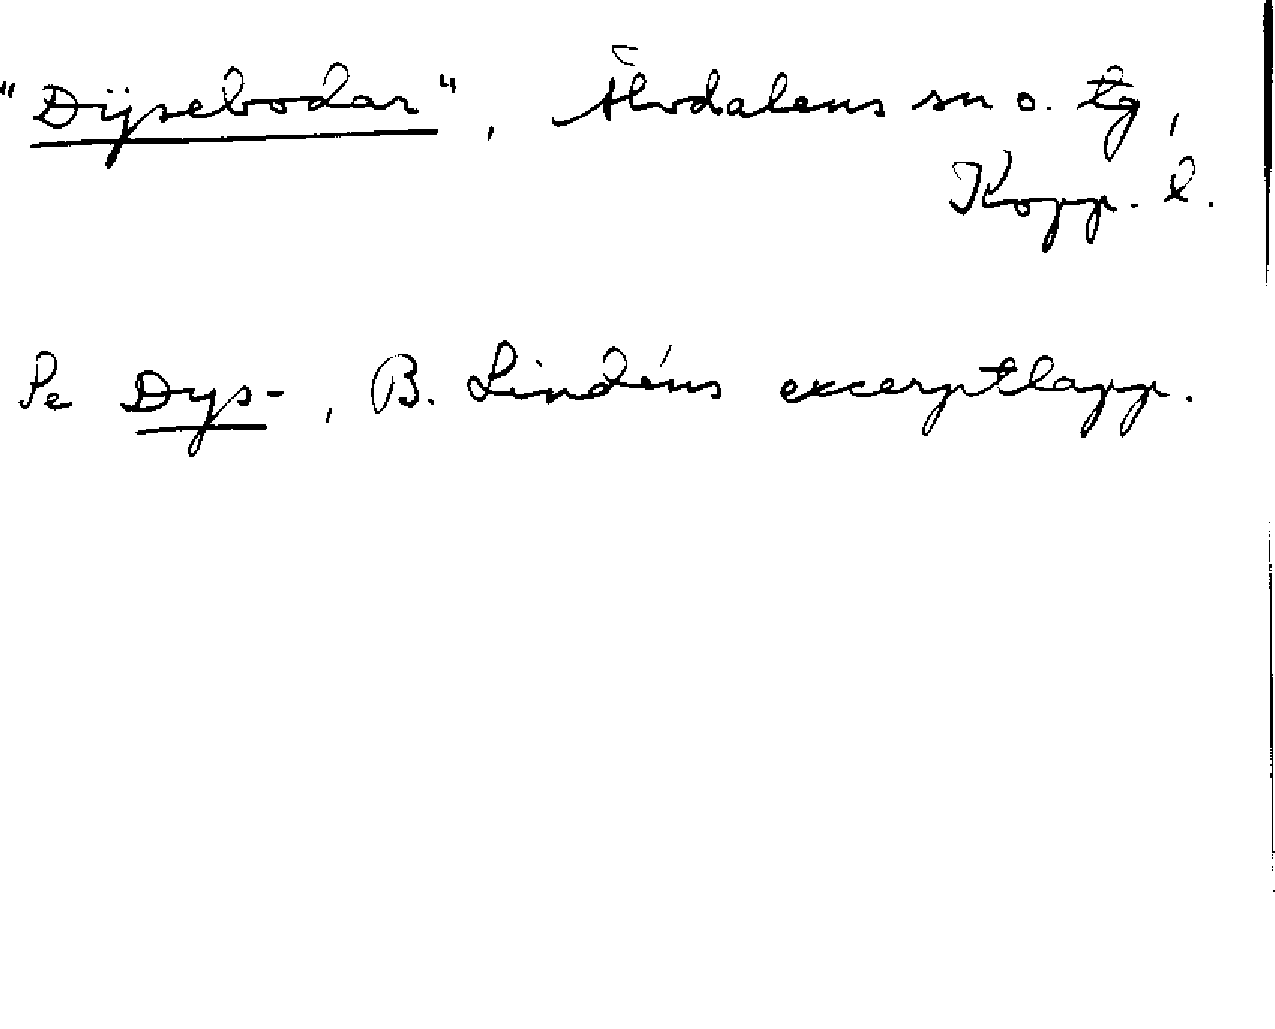 "Dÿsebodar", Älvdalens sn o. tg,
Kopp. l.
Se Dys-, B. Lindéns excerptlapp.